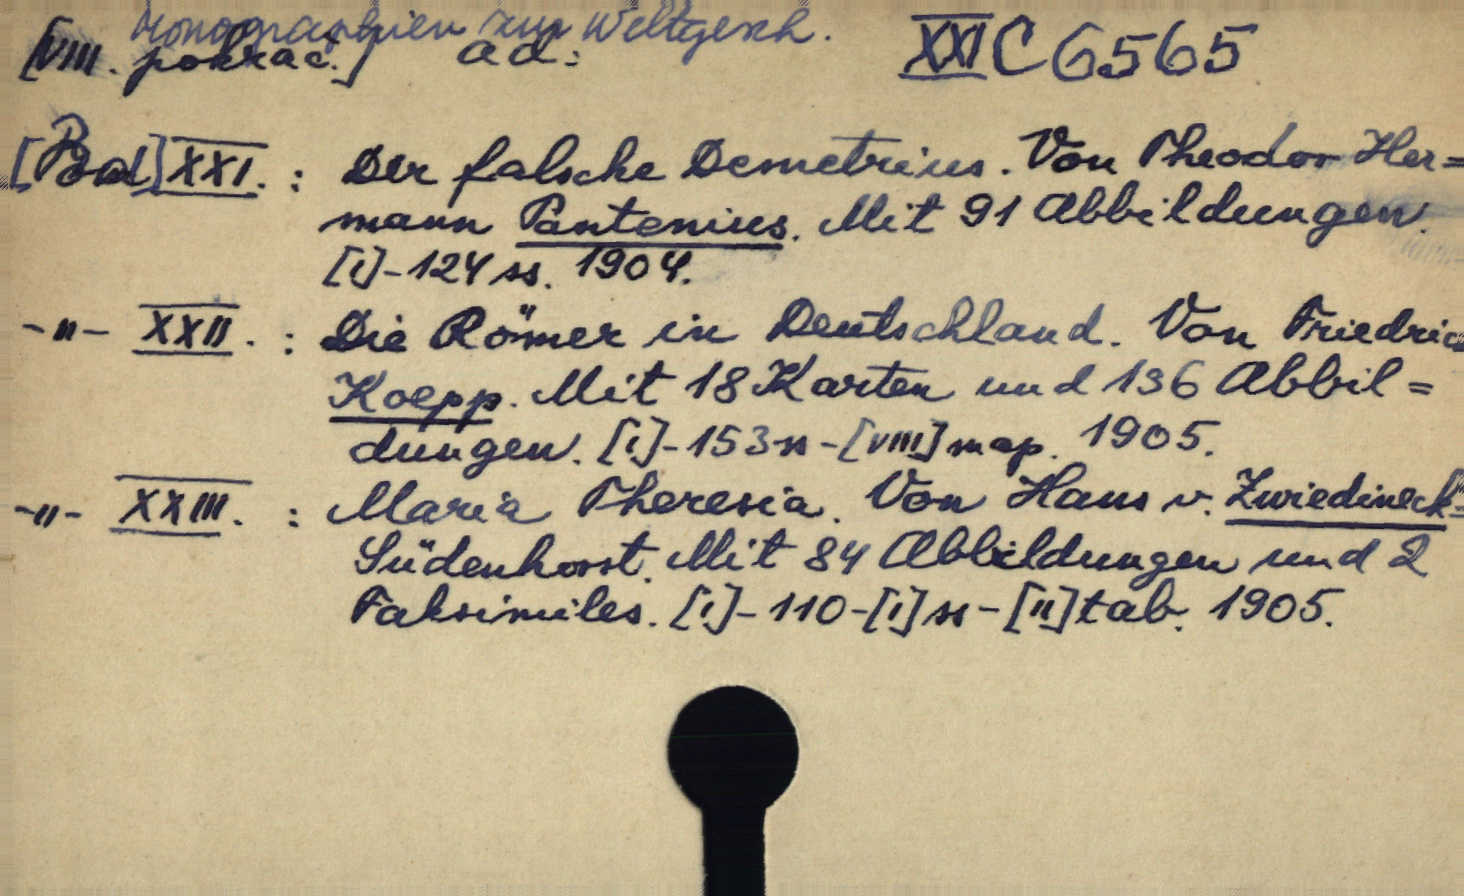 Monographien zur Weltgesch.
[VIII. pokrač.] ad: XXI C 6565
[Bd] XXI. : Der falsche Demetrius. Von Theodor Her=
mann Pantenius. Mit 91 Abbildungen.
[I]-124 ss. 1904.
-"- XXII. : Die Römer in Deutschland. Von Friedrich
Koepp. Mit 18 Karten und 136 Abbil=
dungen. [I]-153 ss-[VIII] map. 1905.
-"- XXIII. : Maria Theresia. Von Hans v. Zwiedineck=
Südenhorst. Mit 84 Abbildungen und 2
Faksimiles. [I]-110-[I] ss-[II] tab. 1905.